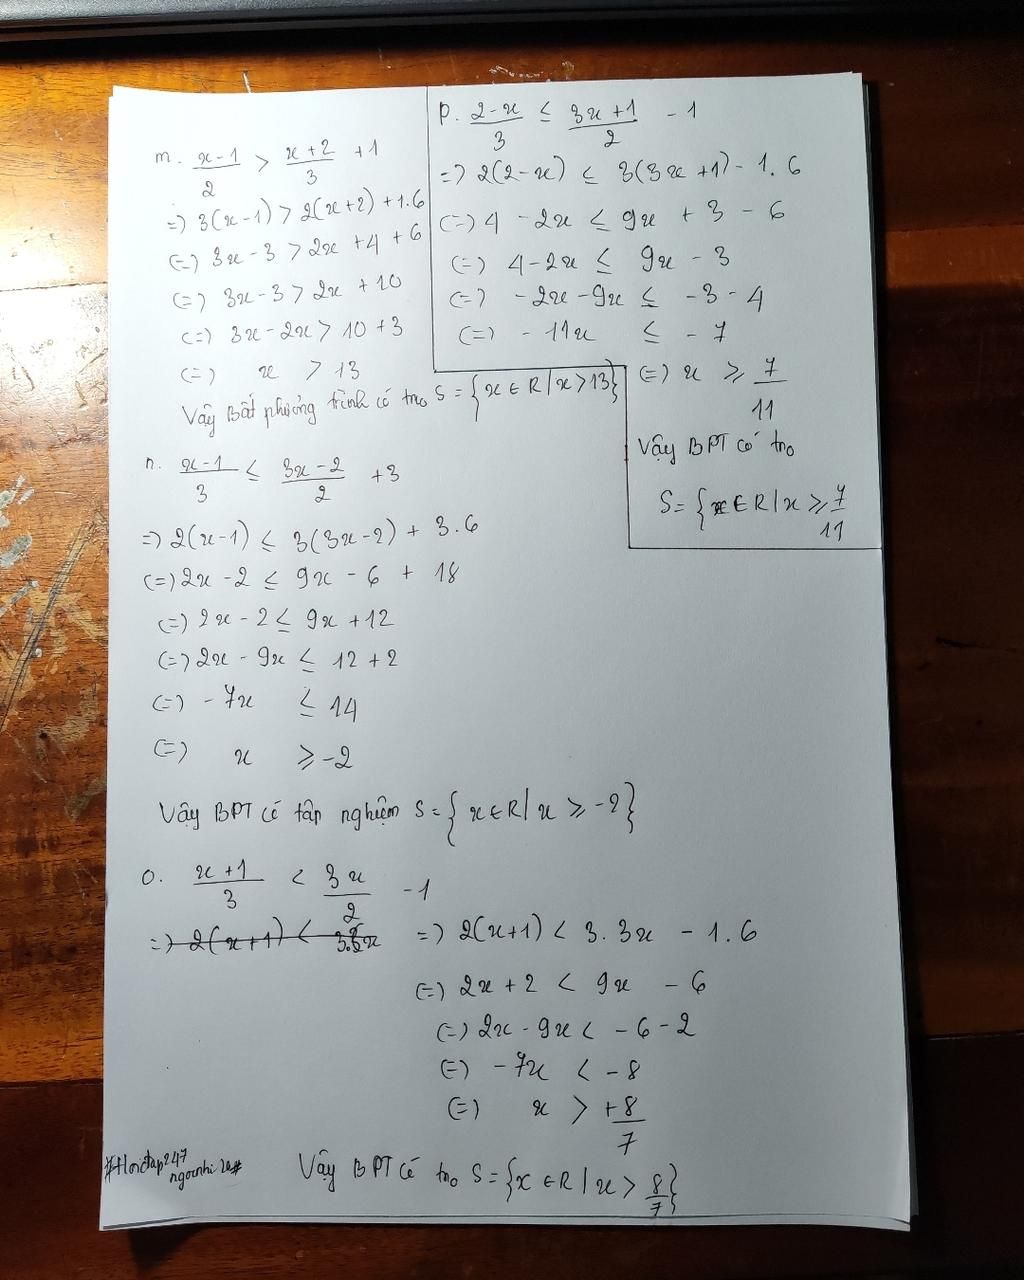 m. x-1/2 > x+2/3 +1
=> 3(x-1) > 2(x+2) + 1.6
(=) 3x-3 > 2x +4 +6
(=) 3x-3 > 2x +10
(=) 3x-2x > 10 +3
(=) x > 13
Vậy Bất phương trình có tno S = {x ∈ R / x > 13}
p. 2-x/3 ≤ 3x+1/2 - 1
=> 2(2-x) ≤ 3(3x+1) - 1.6
(=) 4 - 2x ≤ 9x + 3 - 6
(=) 4-2x ≤ 9x - 3
(=) -2x-9x ≤ -3-4
(=) -11x ≤ -7
(=) x ≥ 7/11
Vậy BPT có tno
S = {x ∈ R / x ≥ 7/11
n. x-1/3 ≤ 3x-2/2 +3
=> 2(x-1) ≤ 3(3x-2) + 3.6
(=) 2x-2 ≤ 9x - 6 + 18
(=) 2x-2 ≤ 9x +12
(=) 2x - 9x ≤ 12+2
(=) -7x ≤ 14
(=) x ≥ -2
Vậy BPT có tập nghiệm S = {x ∈ R / x ≥ -2}
o. x+1/3 < 3x/2 -1
=> 2(x+1) < 3.3x - 1.6
(=) 2x+2 < 9x - 6
(=) 2x-9x < -6-2
(=) -7x < -8
(=) x > +8/7
Vậy BPT có tno S = {x ∈ R / x > 8/7}